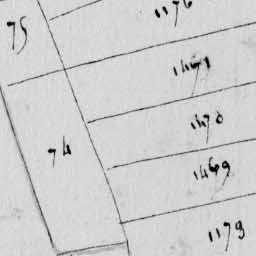 1176
75
1471
1470
74
1469
1179